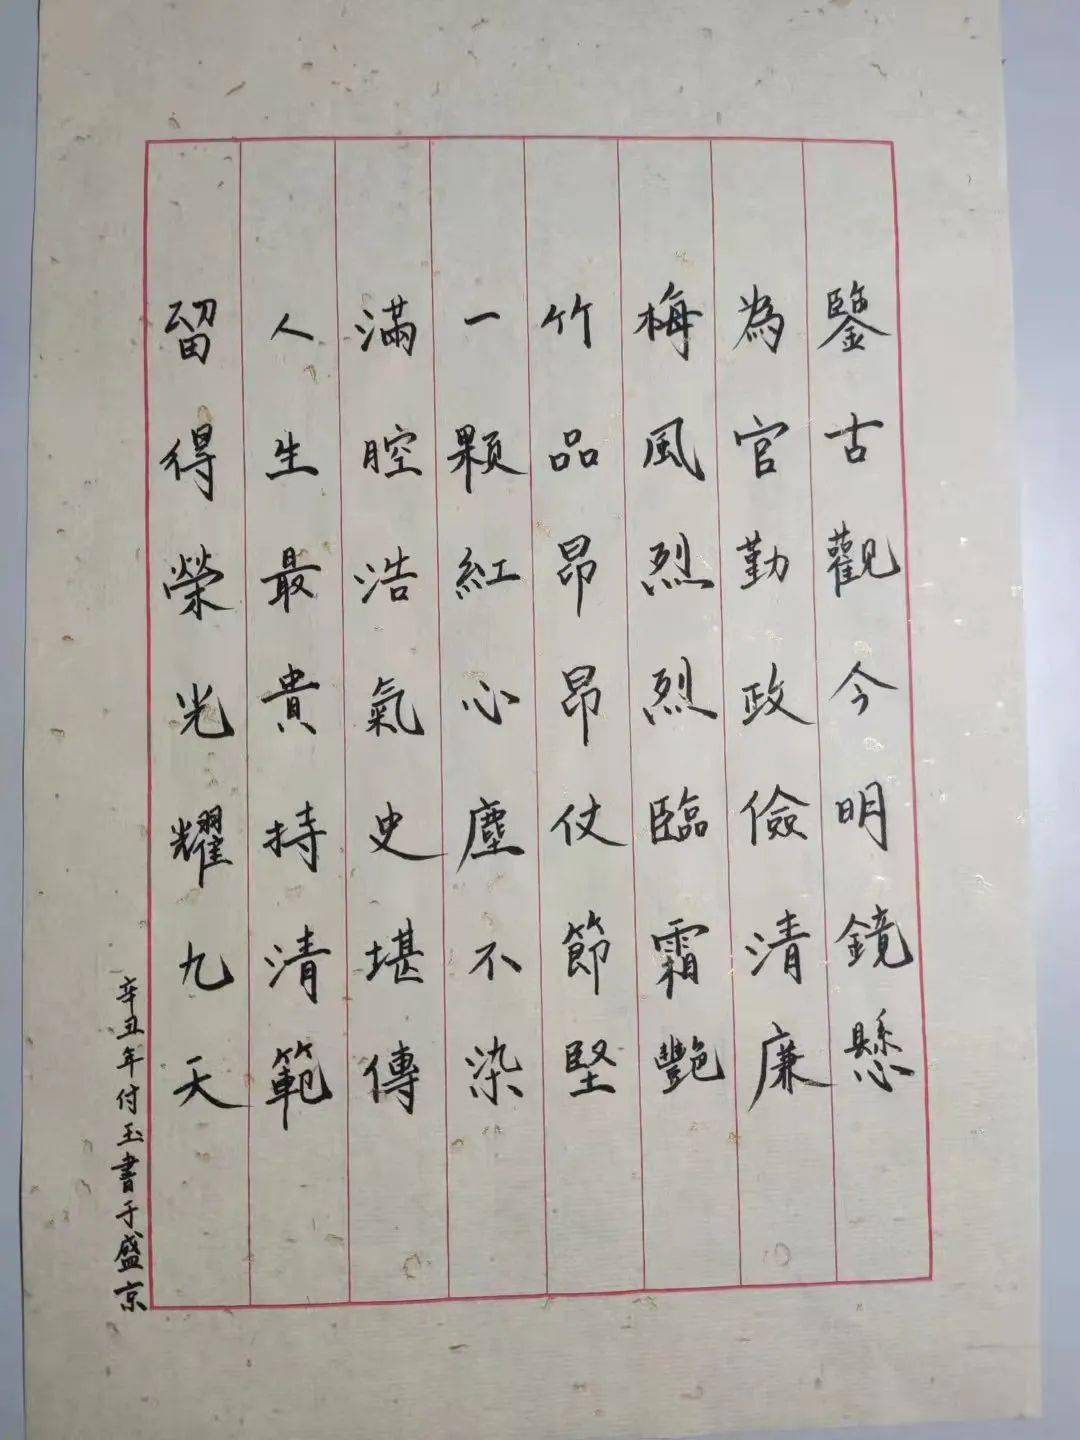 鑒古觀今明鏡懸
為官勤政儉清廉
梅風烈烈臨霜艷
竹品昂昂仗節堅
一顆紅心塵不染
滿腔浩氣史堪傳
人生最貴持清範
留得榮光耀九天
辛丑年付玉書于盛京